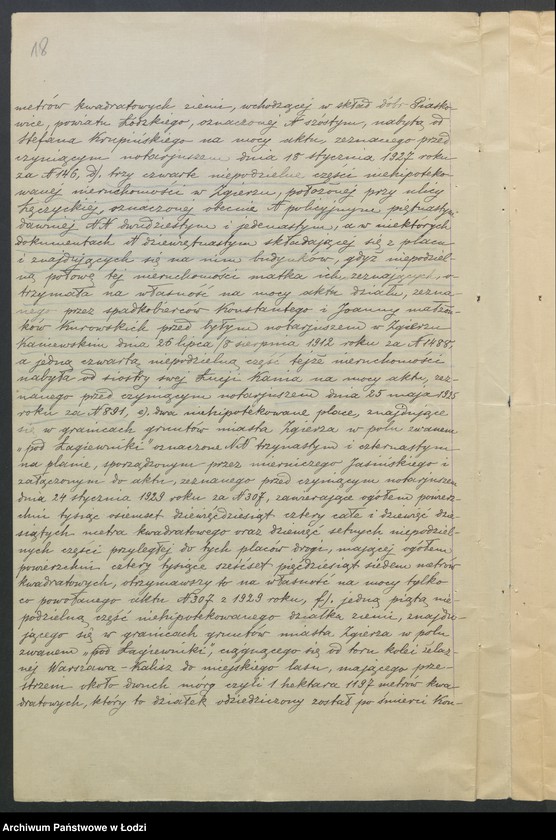 18
metrów kwadratowych ziemi, wchodzącej w skład dóbr Piasko-
wice, powiatu Łódzkiego, oznaczonej № szóstym, nabytą od
Stefana Krupińskiego na mocy aktu, zeznanego przed
czyniącym notarjuszem dnia 18 stycznia 1927 roku
za № 146, d). trzy czwarte niepodzielne części niehipoteko-
wanej nieruchomości w Zgierzu, położonej przy ulicy
Łęczyckiej, oznaczonej obecnie № policyjnym piętnastym,
dawniej №№ dwudziestym i jedenastym, a w niektórych
dokumentach № dziewiętnastym składającej się z placu
i znajdujących się na nim budynków, gdyż niepodziel-
ną połowę tej nieruchomości matka ich, zeznających, o-
trzymała na własność na mocy aktu działu, zezna-
nego przez spadkobierców Konstantego i Joanny małżon-
ków Kurowskich przed byłym notarjuszem w Zgierzu
Kaniewskim dnia 26 lipca/8 sierpnia 1912 roku za № 1488,
a jedną czwartą niepodzielną część tejże nieruchomości
nabyła od siostry swej Łucji Kania na mocy aktu, zez-
nanego przed czyniącym notarjuszem dnia 25 maja 1925
roku za № 891, e). dwa niehipotekowane place, znajdujące
się w granicach gruntów miasta Zgierza w polu zwanem
„pod Łagiewniki" oznaczone №№ trzynastym i czternastym
na planie, sporządzonym przez mierniczego Jasińskiego i
załączonym do aktu, zeznanego przed czyniącym notarjuszem
dnia 24 stycznia 1929 roku za № 307, zawierające ogółem powierz-
chni tysiąc osiemset dziewięćdziesiąt cztery całe i dziewięć dzie-
siątych metra kwadratowego oraz dziewięć setnych niepodziel-
nych części przyległej do tych placów drogi, mającej ogółem
powierzchni cztery tysiące sześćset pięćdziesiąt siedem metrów
kwadratowych, otrzymawszy to na własność na mocy tylko
co powołanego aktu № 307 z 1929 roku, f). jedną piątą nie-
podzielną część niehipotekowanego działka ziemi, znajdu-
jącego się w granicach gruntów miasta Zgierza w polu
zwanem „pod Łagiewniki", ciągnącego się od toru kolei żelaz-
nej Warszawa-Kalisz do miejskiego lasu, mającego prze-
strzeni około dwóch mórg czyli 1 hektara 1197 metrów kwa-
dratowych, który to działek odziedziczony został po śmierci Kon-
Archiwum Państwowe w Łodzi